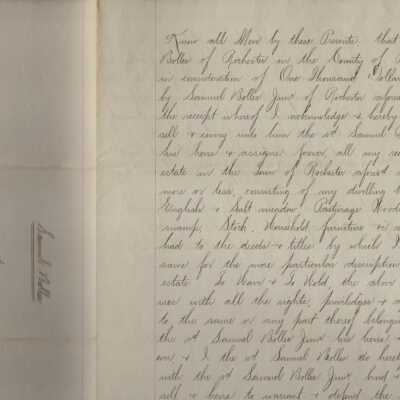 Know all Men by these Presents. that
Boller of Rochester in the County of
in consideration of One Thousand Dollar
by Samuel Boller Junr of Rochester afores
the receipt whereof I acknowledge & hereby
sell & convey unto him the sd Samuel
his heirs & assigns forever, all my rea
estate in the Town of Rochester afores'd
more or less, consisting of my dwelling
English & Salt meadow Pasturage Wood
swamp, Stock, Household furniture &
had to the deeds & titles by which I
same for the more particular description
estate To Have & To Hold, the above
ises with all the rights, priviledges &
to the same or any part thereof belongin
the sd Samuel Boller Junr his heirs &
& I the sd Samuel Boller do hereb
with the sd Samuel Boller Junr his
self & heirs to warrant & defend the
Samuel Boller